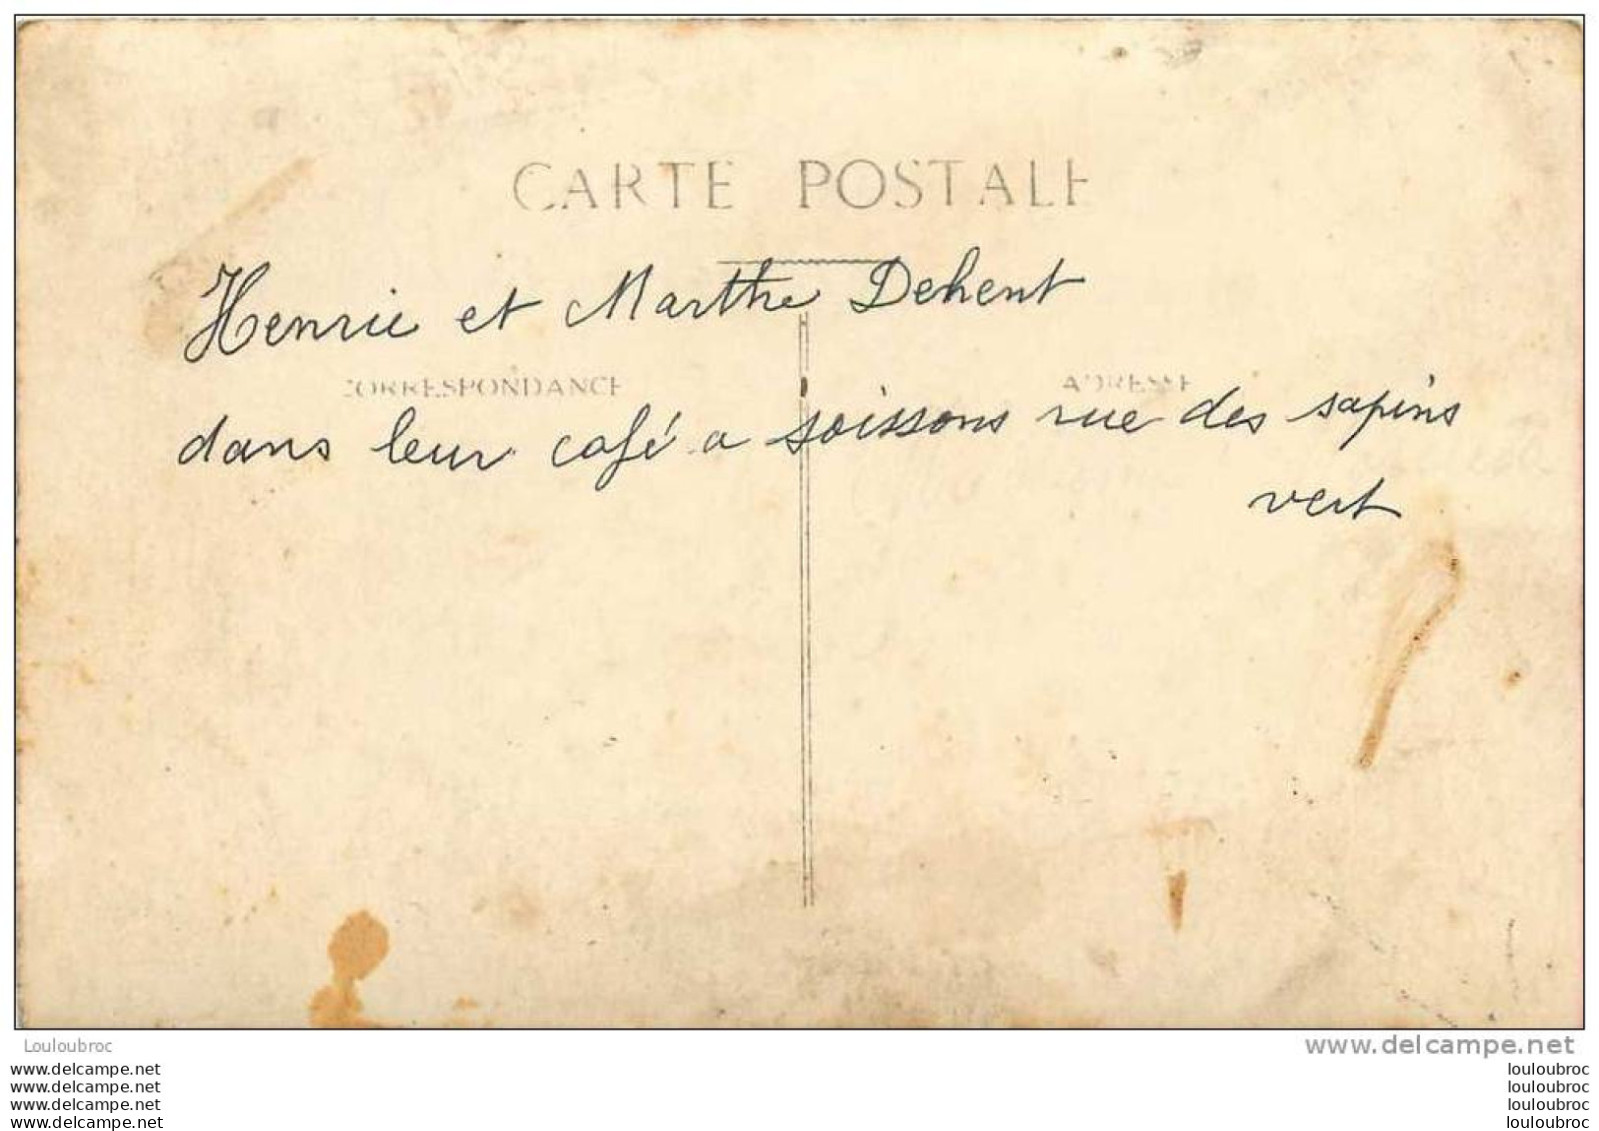 CARTE POSTALE
Henrie et Marthe Dehent
CORRESPONDANCE
ADRESSE
dans leur café a soissons rue des sapins
vert
Louloubroc
www.delcampe.net
www.delcampe.net
www.delcampe.net
www.delcampe.net
www.delcampe.net
louloubroc
louloubroc
louloubroc
louloubroc